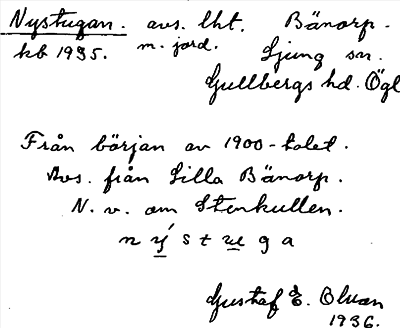 Nystugan. avs. lht. Bänorp.
kb 1935. m. jord. Ljung sn.
Gullbergs hd. Ögl
Från början av 1900-talet.
Avs. från Lilla Bänorp.
N. v. om Stenkullen.
n ý s t u g a
Gustaf E. Olvan
1936.